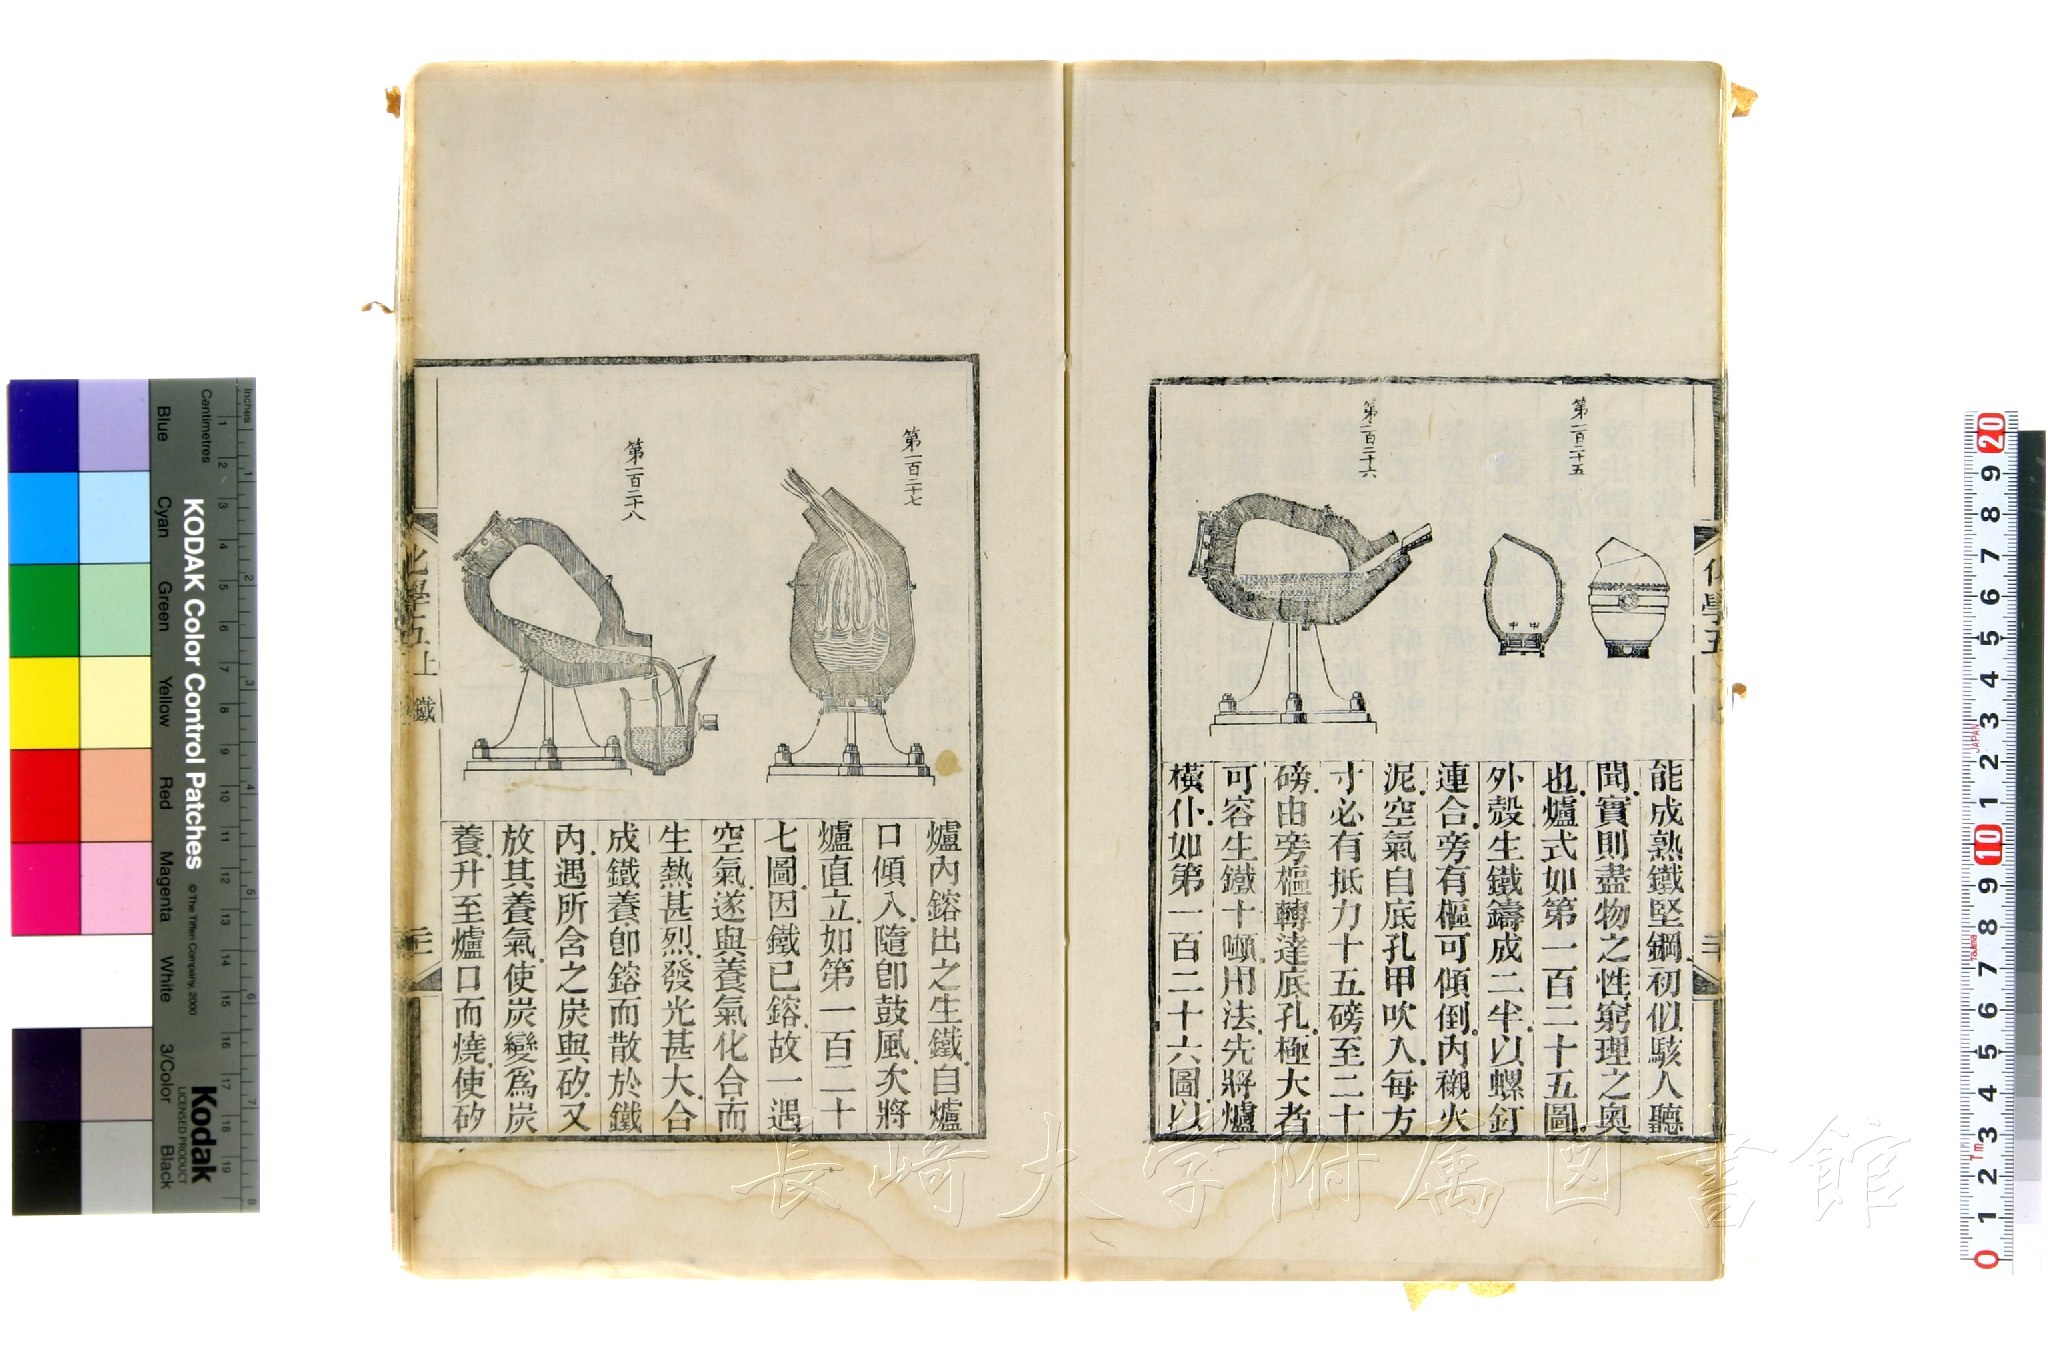 第一百二十五
第一百二十六
能成熟鐵堅鋼初似駭人聽
聞實則盡物之性窮理之奧
也爐式如第一百二十五圖
外殼生鐵鑄成二半以螺釘
連合旁有樞可傾倒內襯火
泥空氣自底孔甲吹入每方
寸必有抵力十五磅至二十
磅由旁樞轉達底孔極大者
可容生鐵十噸用法先將爐
橫仆如第一百二十六圖以
第一百二十七
第一百二十八
爐內鎔出之生鐵自爐
口傾入隨卽鼓風次將
爐直立如第一百二十
七圖因鐵已鎔故一遇
空氣遂與養氣化合而
生熱甚烈發光甚大合
成鐵養卽鎔而散於鐵
內遇所含之炭與矽又
放其養氣使炭變爲炭
養升至爐口而燒使矽
化學五上
鐵
長崎大学附属図書館
KODAK Color Control Patches
© The Tiffen Company, 2000
Kodak
LICENSED PRODUCT
Inches
Centimetres
Blue
Cyan
Green
Yellow
Red
Magenta
White
3/Color
Black
JAPAN